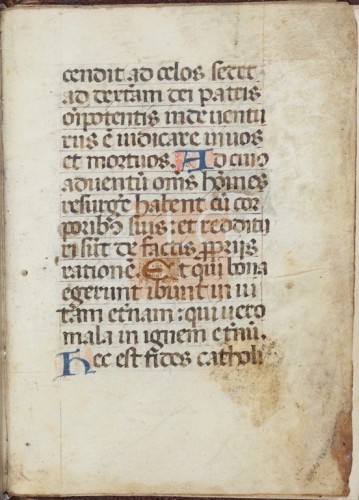 cendit ad celos sedet
ad dexteram dei patris
oīpotentis inde ventu
rus ē iudicare vivos
et mortuos. Ad cuiꝰ
adventū oms hōines
resurgē habent cū cor
poribꝰ suis: et redditu
ri sūt de factis ꝓpriis
rationē. Et qui bona
egerunt ibunt in vi
tam et̄nam: qui vero
mala in ignem et̄nū.
Hec est fides catholi